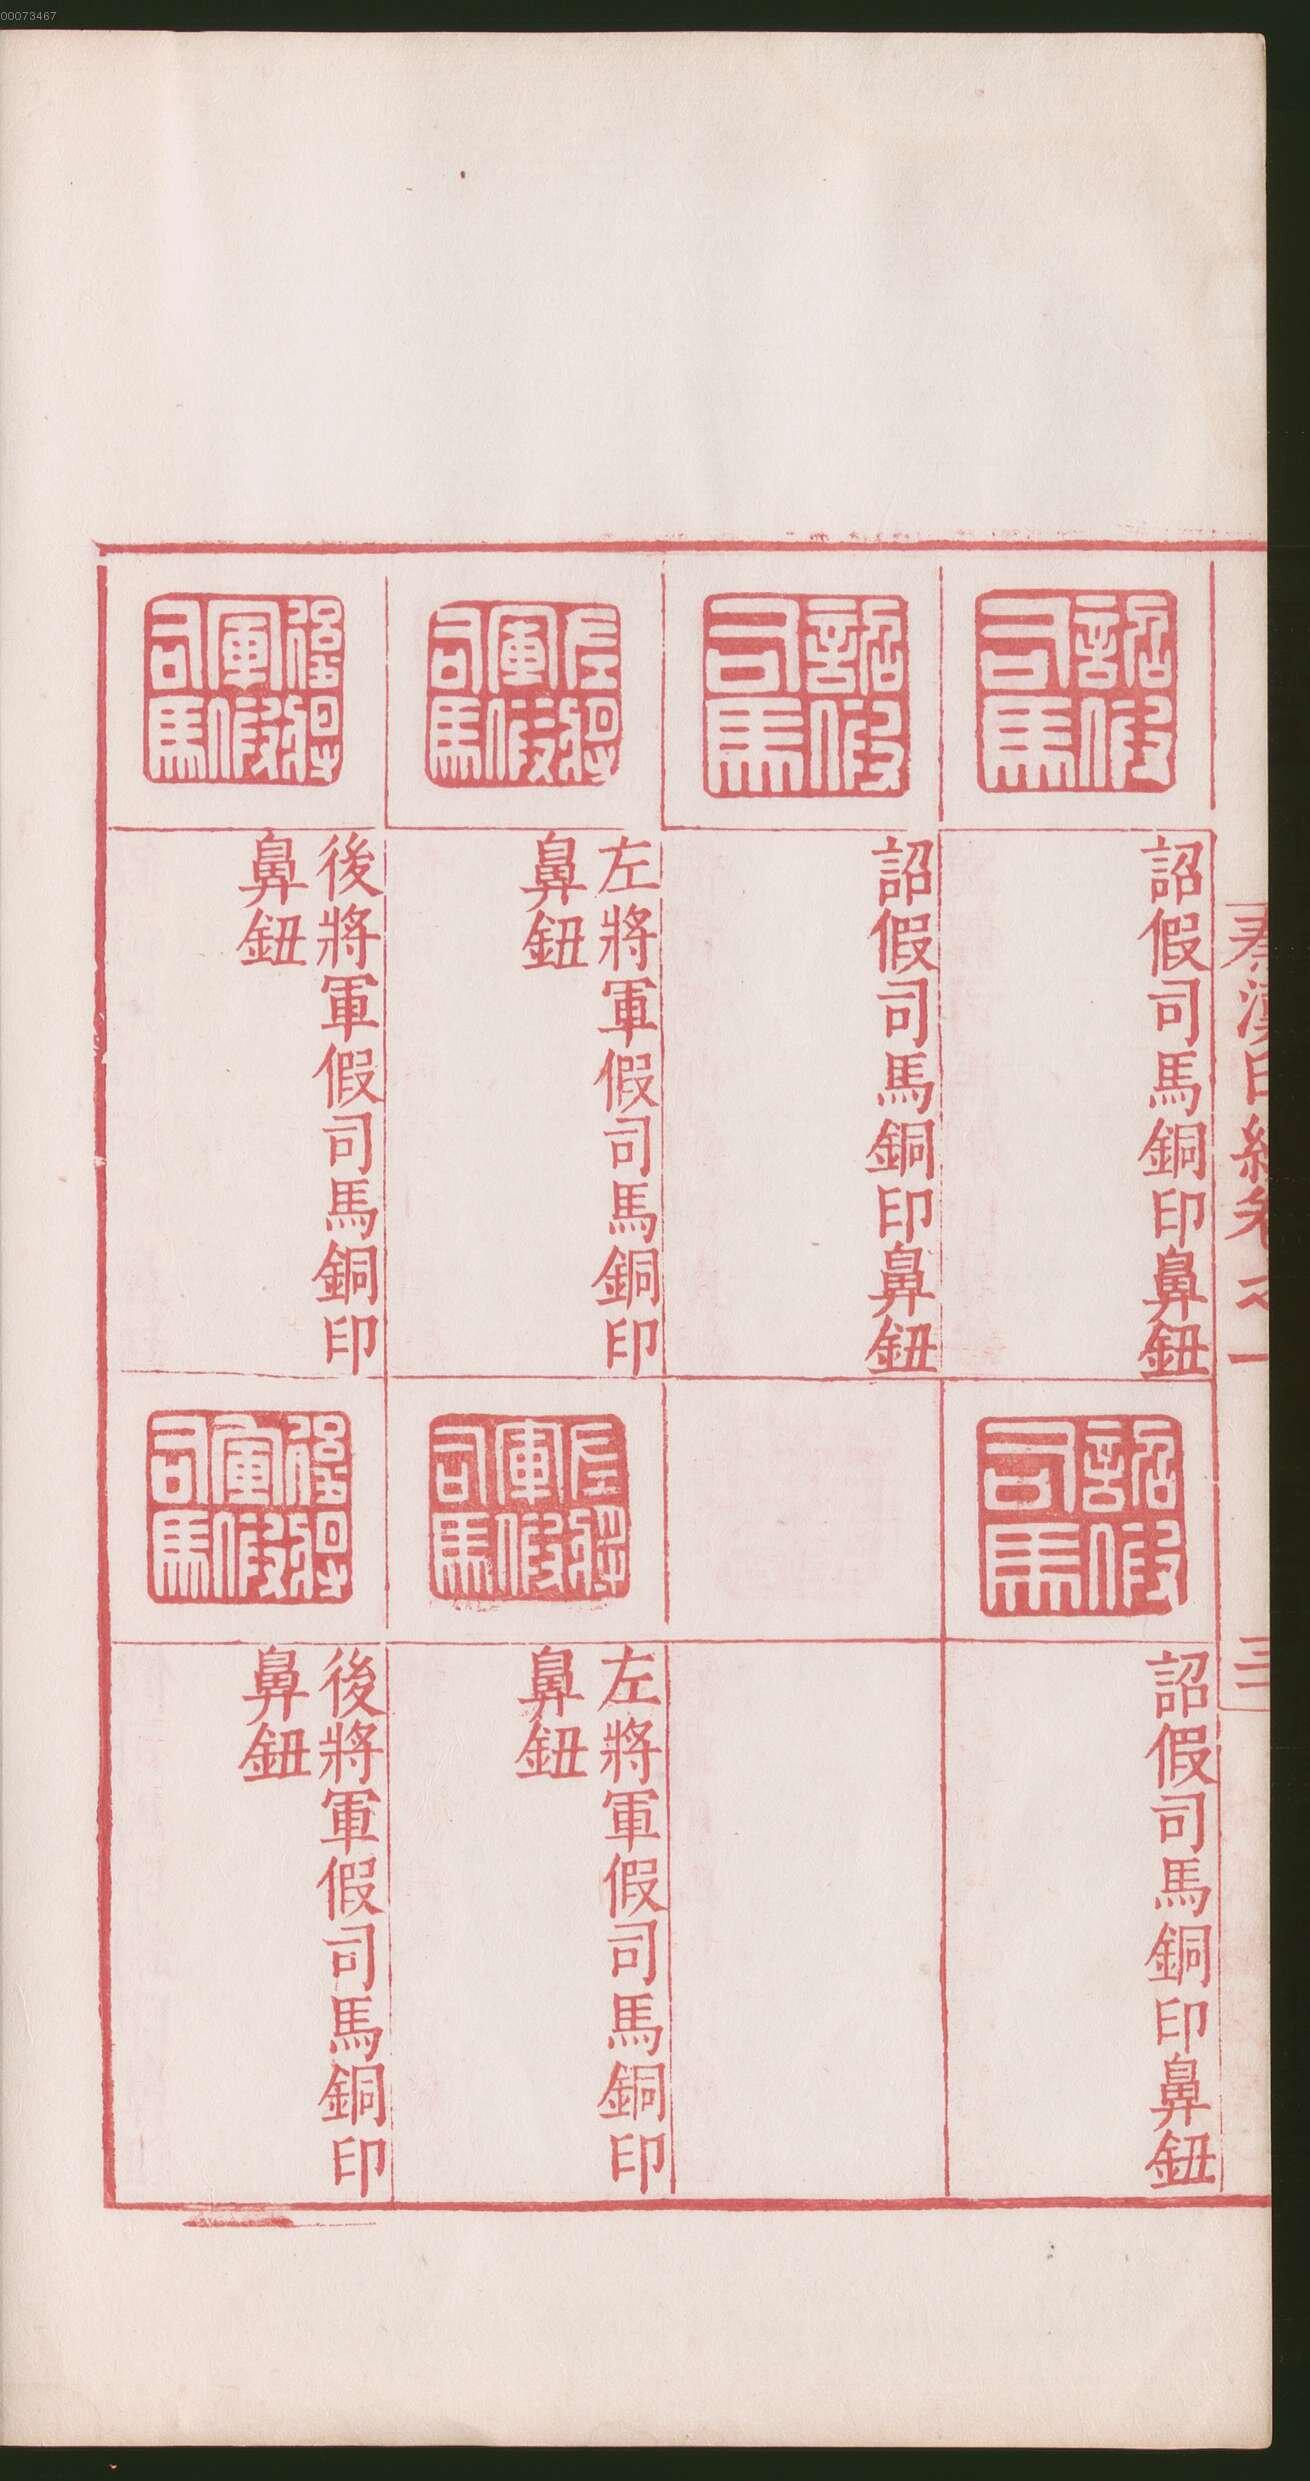 00073467
秦漢印統卷之一
三
詔假司馬
詔假司馬銅印鼻鈕
詔假司馬
詔假司馬銅印鼻鈕
左將軍假司馬
左將軍假司馬銅印
鼻鈕
後將軍假司馬
後將軍假司馬銅印
鼻鈕
詔假司馬
詔假司馬銅印鼻鈕
左將軍假司馬
左將軍假司馬銅印
鼻鈕
後將軍假司馬
後將軍假司馬銅印
鼻鈕